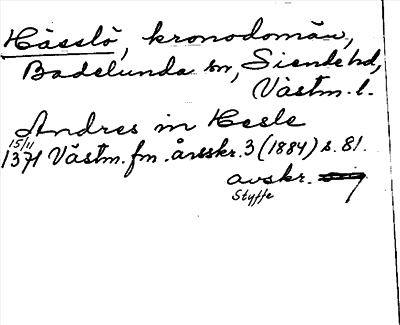 Hässlö, kronodomän,
Badelunda sn, Siende hd,
Västm. l.
Andres in Hesle
15/11
1371 Västm. fm. årsskr. 3 (1884) s. 81.
avskr.
Styffe